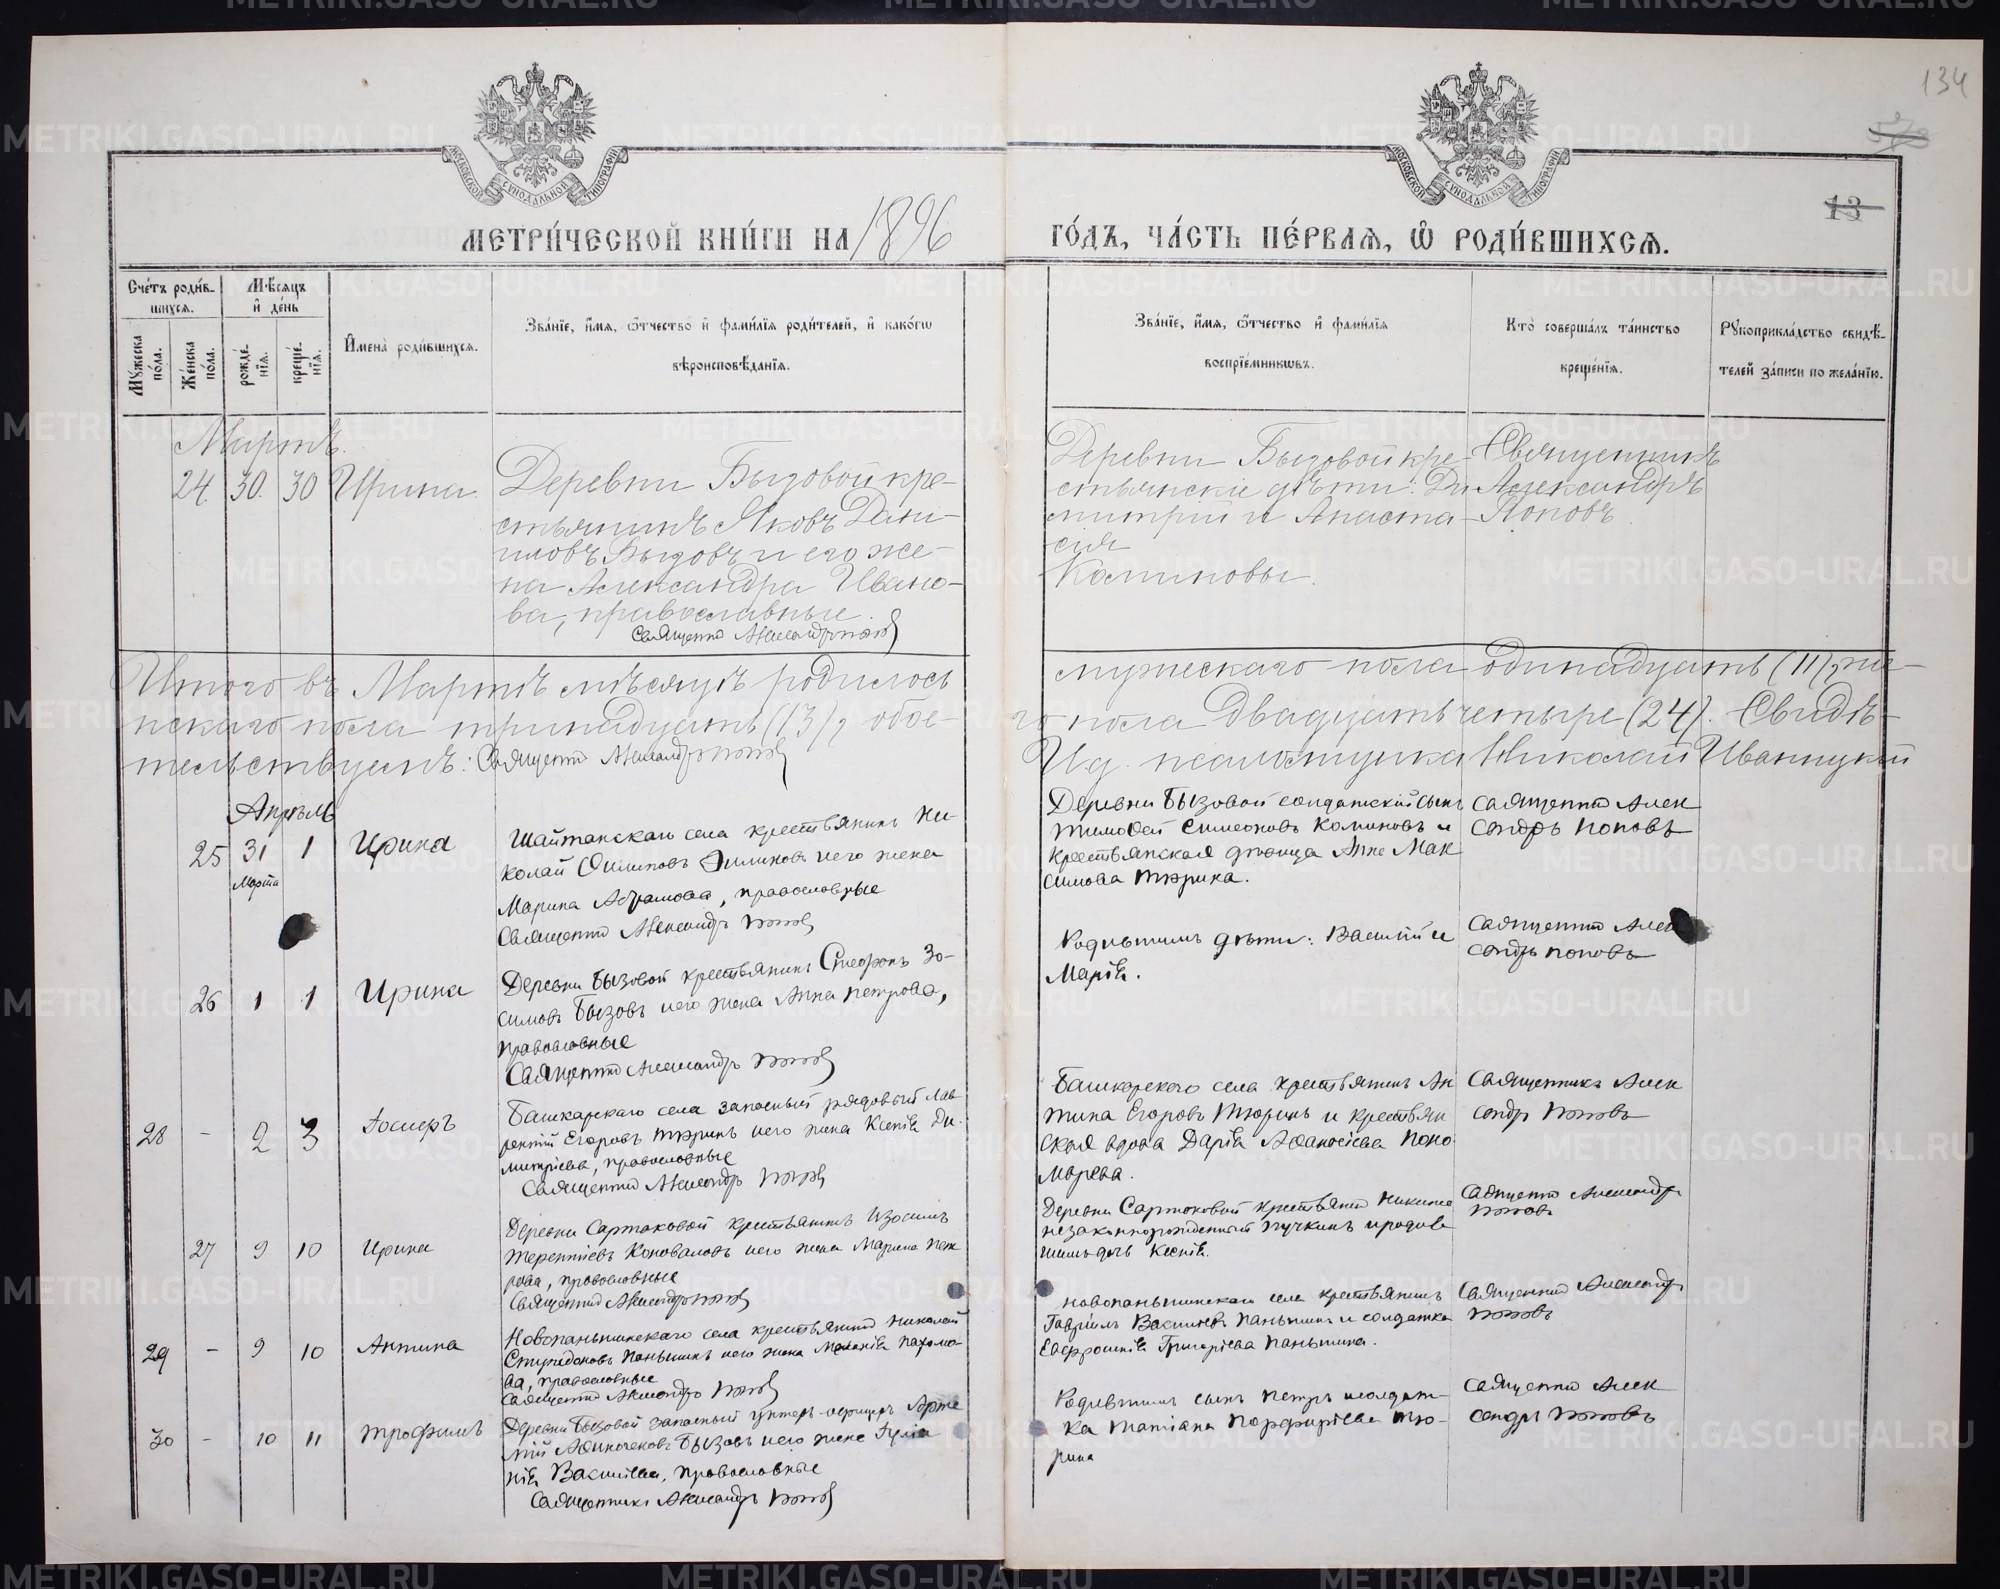 134
13
МОСКОВСКОЙ СУНОДАЛЬНОЙ ТИПОГРАФІИ
МОСКОВСКОЙ СУНОДАЛЬНОЙ ТИПОГРАФІИ
МЕТРИ́ЧЕСКОЙ КНИ́ГИ НА 1896
ГО́ДЪ, ЧА́СТЬ ПЕ́РВАЯ, Ѡ РОДИ́ВШИХСЯ.
Сче́тъ роди́в-
шихся.
Му́жеска по́ла.
Же́нска по́ла.
Мѣ́сяцъ
и де́нь
рожде́-
нія.
креще́-
нія.
Имена̀ роди́вшихся.
Зва́ніе, и́мя, о́тчество и фами́лія роди́телей, и како́гѡ
вѣроисповѣ́данія.
Зва́ніе, и́мя, о́тчество и фами́лія
воспріе́мникѡвъ.
Кто̀ соверша́лъ та́инство
креще́нія.
Рукоприкла́дство свидѣ́-
телей за́писи по жела́нію.
Мартъ.
24 30. 30 Ирина.
Деревни Бызовой кре-
стьянинъ Яковъ Дани-
ловъ Бызовъ и его же-
на Александра Ивано-
ва, православные.
Деревни Бызовой кре-
стьянскіе дѣти: Ди
митрій и Анаста-
сія
Калиновы.
Священникъ
Александръ
Поповъ
Итого въ Мартѣ мѣсяцѣ родилось
мужескаго пола одинадцать (11), же-
нскаго пола тринадцать (13), обое-
го пола двадцать четыре (24). Свидѣ-
тельствуемъ:
И.д. псаломщика Николай Иваницкій
Апрѣль
25 31 1 Ирина
Марта
Шайтанскаго села крестьянинъ Ни-
колай Филиповъ Филиповъ и его жена
Марина Абрамова, православные
Священник Александръ Попов
Деревни Бызовой солдатскій сынъ
Тимофей Симеоновъ Калиновъ и
крестьянская дѣвица Анна Мак
симова Тюрина.
Священник Алек
сандръ Поповъ
26 1 1 Ирина
Деревни Бызовой крестьянинъ Симеонъ Зо-
симовъ Бызовъ и его жена Анна Петрова,
православные
Священник Александръ Попов
Родившимъ дѣти: Василій и
Марія.
Священник Алек
сандръ Поповъ
28 - 2 3 Іосифъ
Башкарскаго села запасный рядовый Лав-
рентій Егоровъ Тюринъ и его жена Ксенія Ди-
митріева, православные
Священник Александръ Попов
Башкарскаго села крестьянинъ Ан
типа Егоровъ Тюринъ и крестьян
ская вдова Дарія Афанасіева Поно
марева.
Священникъ Алек
сандр Поповъ
27 9 10 Ирина
Деревни Сартаковой крестьянинъ Изосимъ
Терентіевъ Коноваловъ и его жена Марина Пет
рова, православные
Священник Александр Попов
Деревни Сартаковой крестьянин Никита
незаконнорожденный Пучкинъ и родив
шимъ дочь Ксенія.
Священник Александр
Поповъ
29 - 9 10 Антипа
Новопаньшинскаго села крестьянин Николай
Спиридоновъ Паньшинъ и его жена Меланія Пахомо-
ва, православные
Священник Александръ Попов
Новопаньшинскаго села крестьянинъ
Гавріилъ Василіевъ Паньшинъ и солдатка
Евфросинія Григоріева Паньшина.
Священник Александр
Поповъ
30 - 10 11 Трофимъ
Деревни Бызовой запасный унтеръ-офицеръ Арте
мій Бызовъ и его жена Іуліа
нія Василіева, православные
Священникъ Александръ Попов
Родившимъ сынъ Петръ и солдат-
ка Татіана Порфиріева Тю-
рина
Священник Алек
сандръ Поповъ